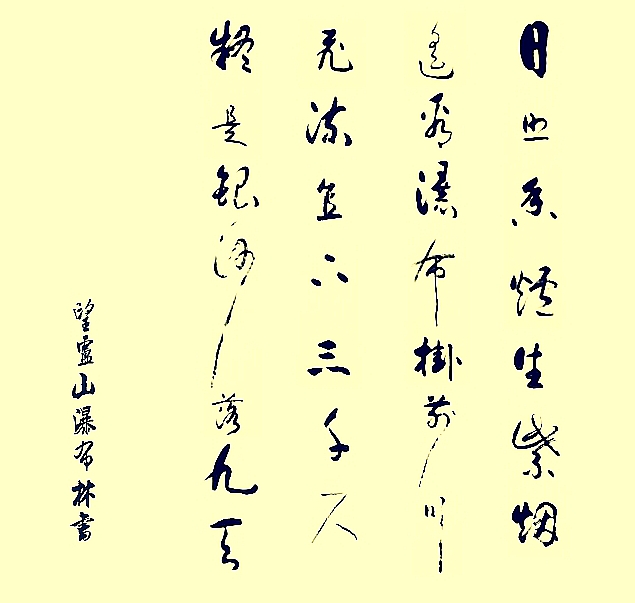 日照香爐生紫烟
遙看瀑布掛前川
飛流直下三千尺
疑是銀河落九天
望廬山瀑布林書